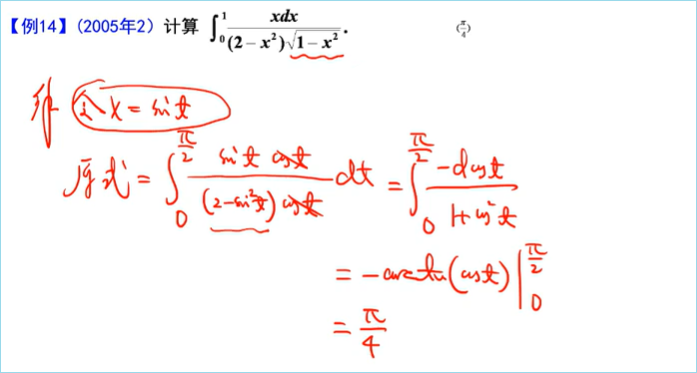 【例14】(2005年2) 计算 ∫₀¹ xdx / (2 − x²)√(1 − x²) . (π/4)
解 令 x = sin t
原式 = ∫₀^{π/2} sin t cos t / (2−sin²t) cos t dt = ∫₀^{π/2} −d cos t / 1+cos²t
= −arctan(cos t) |₀^{π/2}
= π/4